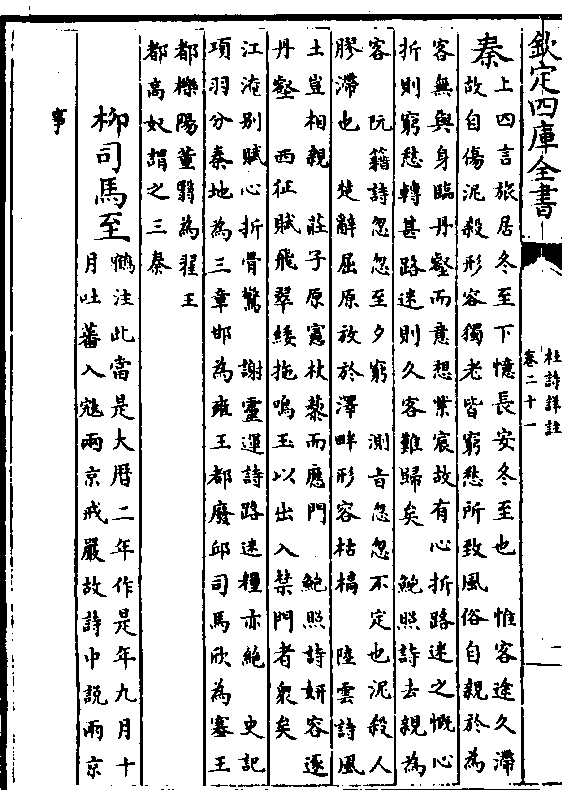 欽定四庫全書
杜詩詳註
卷二十一
二
秦
上四言旅居冬至下憶長安冬至也 惟客途久滯
故自傷泥殺形容獨老皆窮愁所致風俗自親於為
客無與身臨丹壑而意想紫宸故有心折路迷之慨心
折則窮愁轉甚路迷則久客難歸矣 鮑照詩去親為
客 阮籍詩忽忽至夕窮 測旨忽忽不定也泥殺人
膠滯也 楚辭屈原放於澤畔形容枯槁 陸雲詩風
土豈相親 莊子原憲杖藜而應門 鮑照詩妍容逐
丹壑 西征賦飛翠緌拖鳴玉以出入禁門者衆矣
江淹别賦心折骨驚 謝靈運詩路迷糧亦絶 史記
項羽分秦地為三章邯為雍王都廢邱司馬欣為塞王
都櫟陽董翳為翟王
都高奴謂之三秦
柳司馬至
鶴注此當是大厯二年作是年九月十
月吐蕃入寇兩京戒嚴故詩中說兩京
事